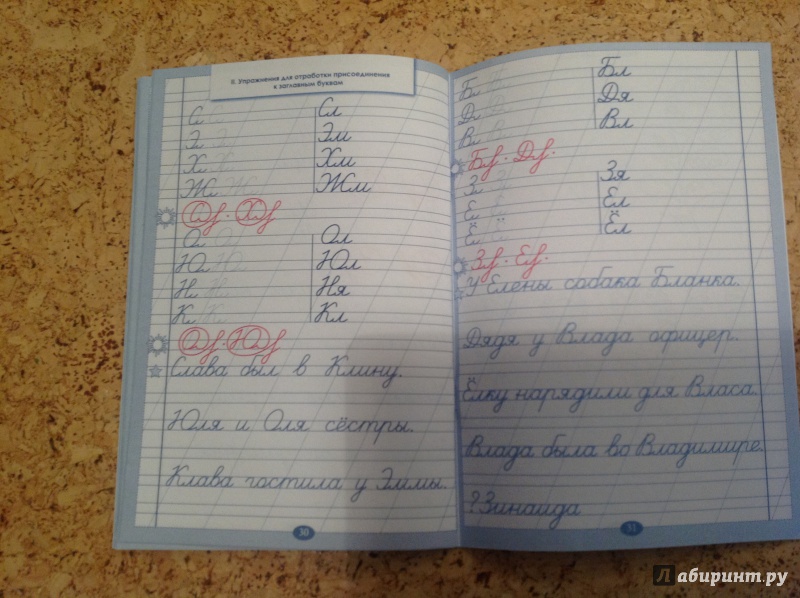 II. Упражнения для отработки присоединения
к заглавным буквам
С Сл
Э Эм
Х Хм
Ж Жм
О Ол
Ю Юл
Н Ня
К Кл
Слава был в Клину.
Юля и Оля сёстры.
Клава гостила у Эммы.
30
Б Бл
Д Дя
В Вл
З Зя
Е Ел
Ё Ёл
У Елены собака Бланка.
Дядя у Влада офицер.
Ёлку нарядили для Власа.
Влада была во Владимире.
?Зинаида
31
Лабиринт.ру